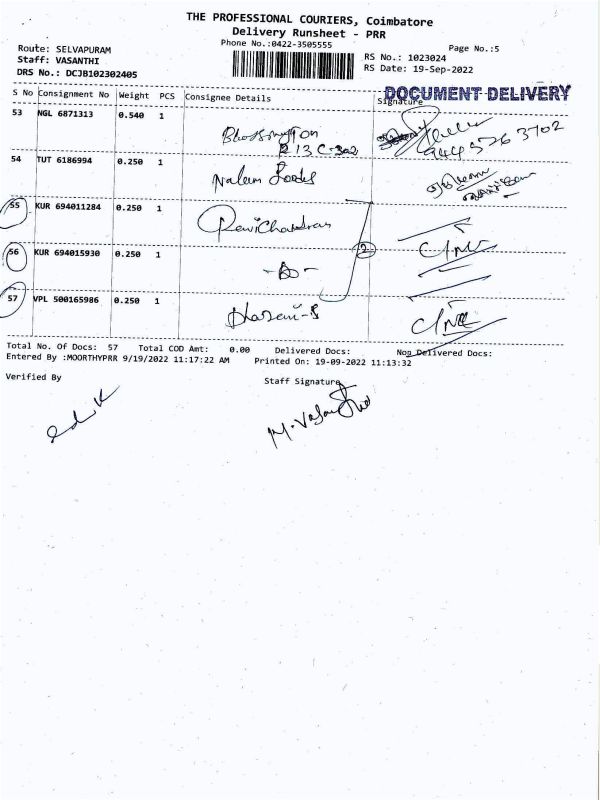 THE PROFESSIONAL COURIERS, Coimbatore
Delivery Runsheet - PRR
Phone No.:0422-3505555
Page No.:5
Route: SELVAPURAM
Staff: VASANTHI
DRS No.: DCJB102302405
RS No.: 1023024
RS Date: 19-Sep-2022
DOCUMENT DELIVERY
S No Consignment No Weight PCS Consignee Details Signature
53 NGL 6871313 0.540 1
944 5263702
54 TUT 6186994 0.250 1
55 KUR 694011284 0.250 1 Ravichandran
2
56 KUR 694015930 0.250 1
57 VPL 500165986 0.250 1
Total No. Of Docs: 57 Total COD Amt: 0.00 Delivered Docs: Non Delivered Docs:
Entered By :MOORTHYPRR 9/19/2022 11:17:22 AM Printed On: 19-09-2022 11:13:32
Verified By
Staff Signature
M. Vasantha